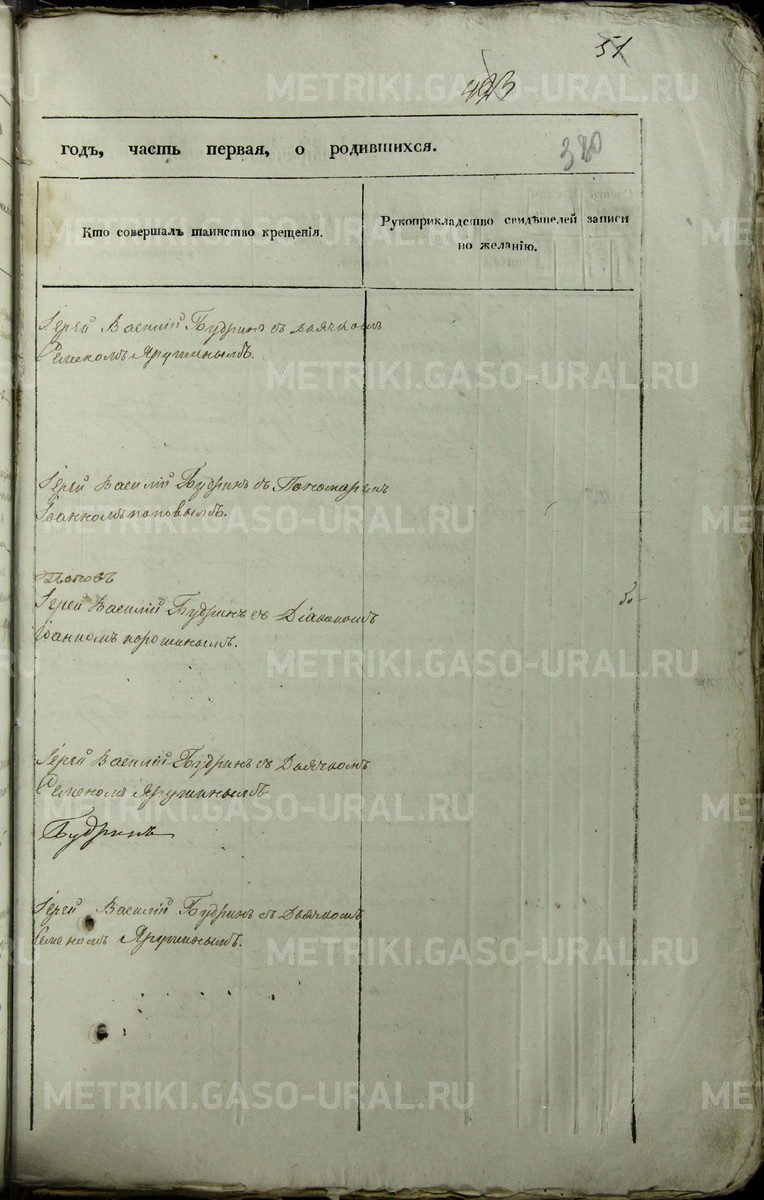 51
423
годъ, часть первая, о родившихся.
380
Кто совершалъ таинство крещенія.
Рукоприкладство свидѣтелей записи
по желанію.
Іерей Василій Будринъ съ дьячкомъ
Семеномъ Яружинымъ.
Іерей Василій Будринъ съ Пономаремъ
Іоанномъ поповымъ.
Поповъ
Іерей Василій Будринъ съ Діакономъ
Іоанномъ порошинымъ.
Іерей Василій Будринъ съ Дьячкомъ
Семеномъ Яружинымъ
Будринъ
Іерей Василій Будринъ съ Дьячкомъ
Семеномъ Яружинымъ.
METRIKI.GASO-URAL.RU